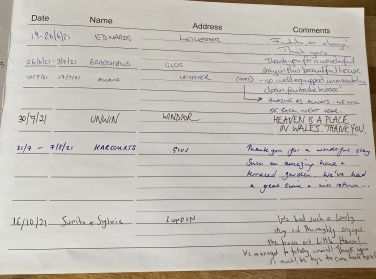 Date Name Address Comments
19-26/6/21 EDWARDS LEICESTER
Thank you
26/6/21 - 3/7/21 GLOS Thank you for a wonderful
stay in this beautiful house
10/7/21 17/7/21 LEICESTER - so well equipped, immaculately
clean fantastic house!
AMAZING AS ALWAYS - WE WILL
BE BACK NEXT YEAR
30/7/21 UNWIN WINDSOR HEAVEN IS A PLACE
IN WALES. THANK YOU.
31/7 - 7/8/21 HARCOURTS GLOS Thank you for a wonderful stay
Such an amazing house &
terraced garden. We've had
a great time & will return...
16/10/21 Sunita + Sylvia LONDON We had such a lovely
stay and thoroughly enjoyed
the house and Little Haven!
We managed to totally unwind! Thank you
so much! We hope to come back here!